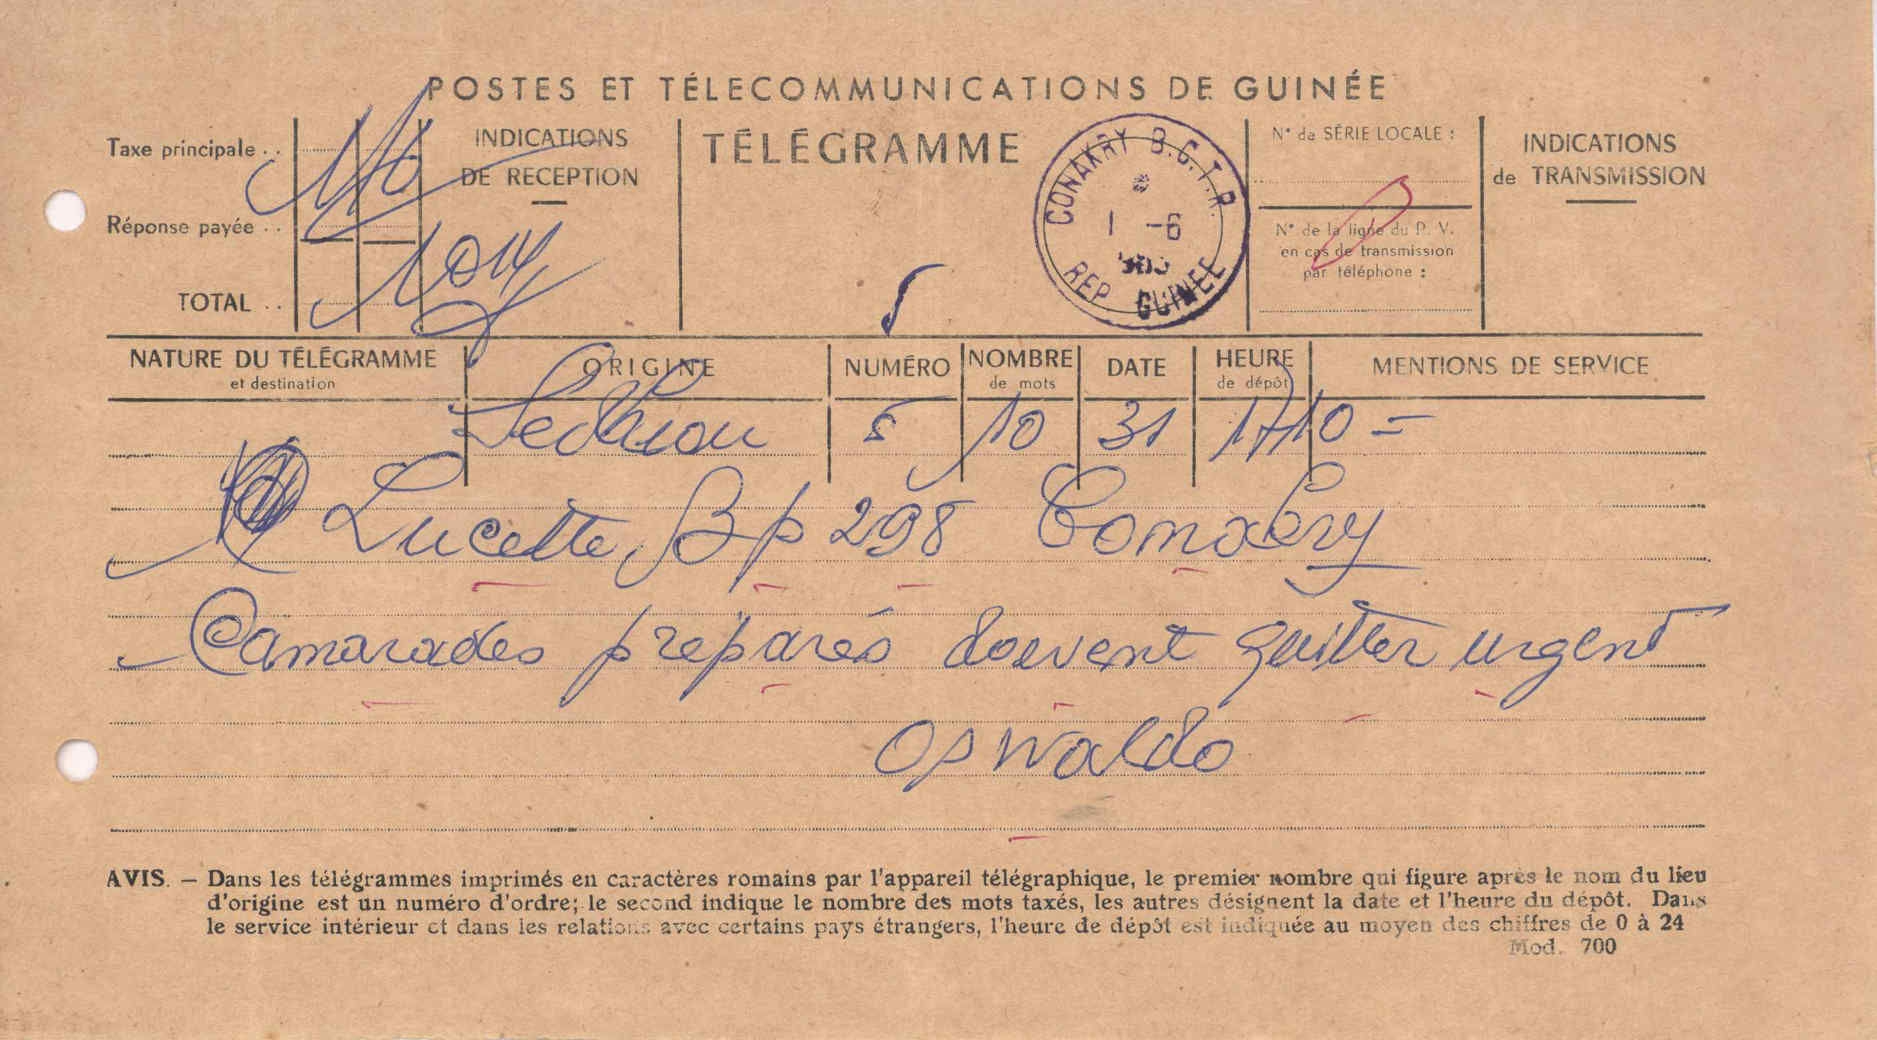 POSTES ET TÉLECOMMUNICATIONS DE GUINÉE
Taxe principale . .
Réponse payée . .
TOTAL . .
INDICATIONS
DE RECEPTION
TÉLÉGRAMME
CONAKRY B.C.T.R.
1 -6
REP. GUINEE
N° de SÉRIE LOCALE :
N° de la ligne du P. V.
en cas de transmission
par téléphone :
INDICATIONS
de TRANSMISSION
NATURE DU TÉLÉGRAMME
et destination
ORIGINE
NUMÉRO
NOMBRE
de mots
DATE
HEURE
de dépôt
MENTIONS DE SERVICE
Sedhiou 5 10 31 17 10 =
Lucette Bp 298 Conakry
Camarades préparés doivent quitter urgent
Oswaldo
AVIS. — Dans les télégrammes imprimés en caractères romains par l'appareil télégraphique, le premier nombre qui figure après le nom du lieu
d'origine est un numéro d'ordre; le second indique le nombre des mots taxés, les autres désignent la date et l'heure du dépôt. Dans
le service intérieur et dans les relations avec certains pays étrangers, l'heure de dépôt est indiquée au moyen des chiffres de 0 à 24
Mod. 700